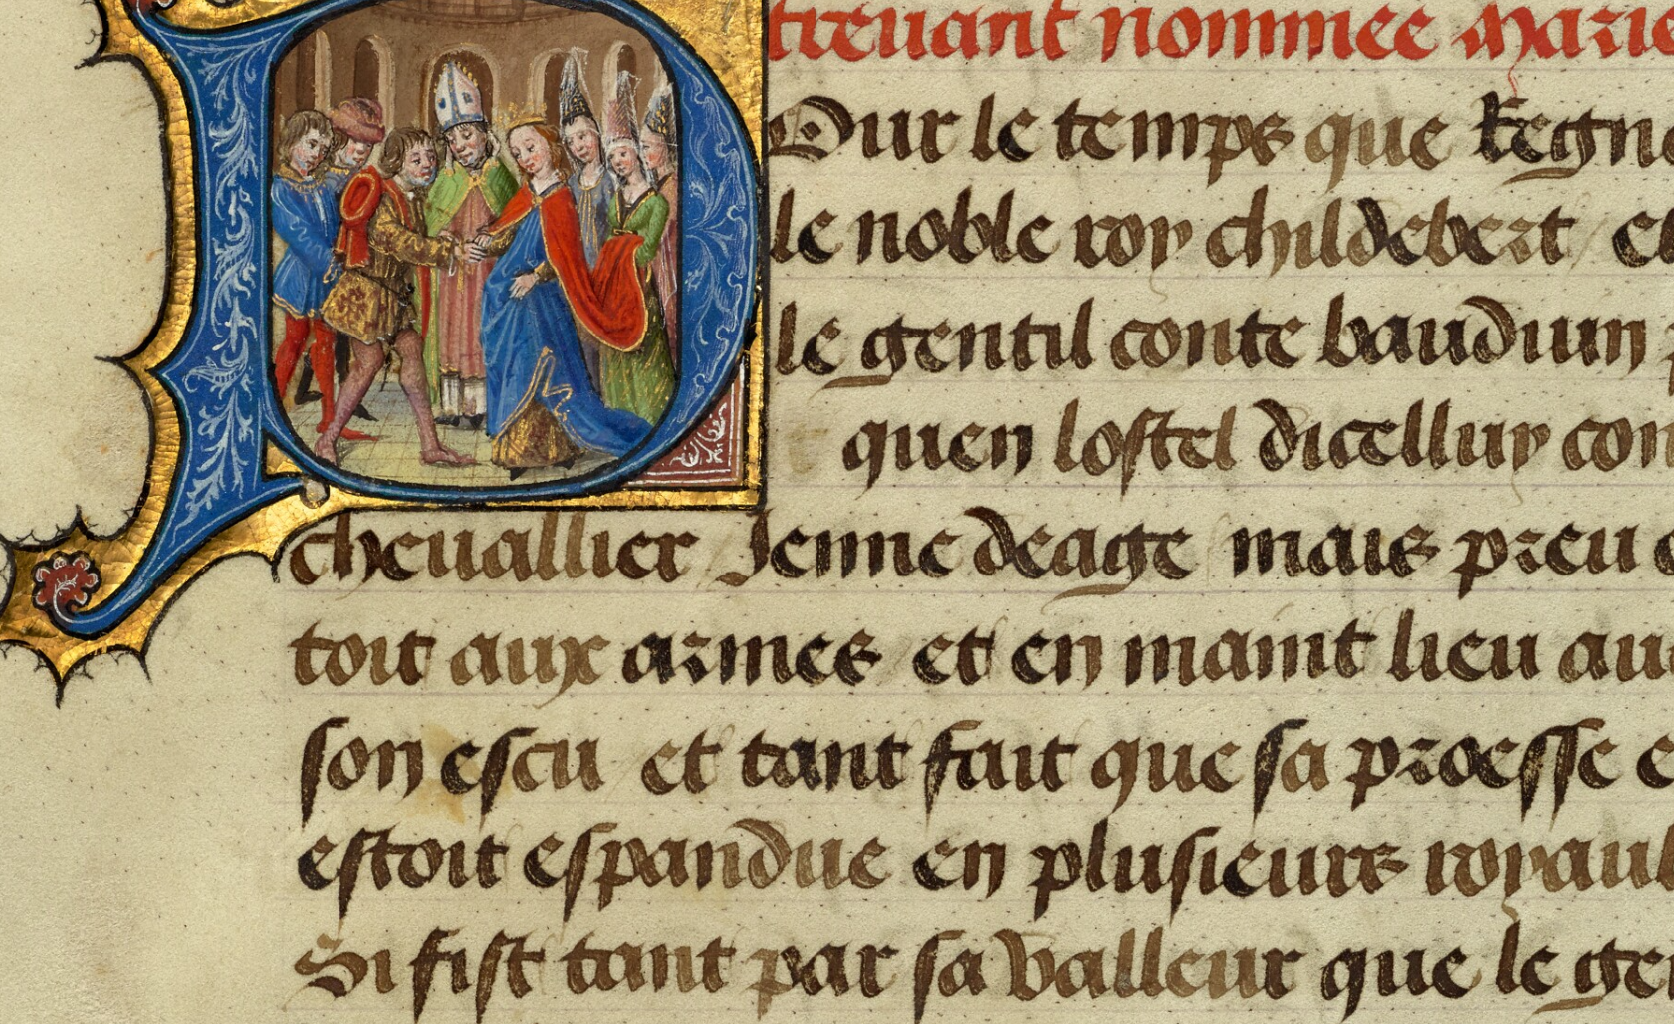 treuant nommee Marie
Our le temps que Regn
le noble roy childebert et
le gentil conte bauduin
quen lostel dicelluy con
cheuallier Jenne deage mais preu e
toit aux armes et en maint lieu au
son escu et tant fait que sa proesse e
estoit espandue en plusieurs royaul
Si fist tant par sa valleur que le gen